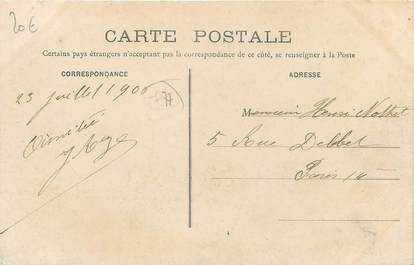 20€
CARTE POSTALE
Certains pays étrangers n'acceptant pas la correspondance de ce côté, se renseigner à la Poste
CORRESPONDANCE
ADRESSE
23 juillet 1906
77
Monsieur Henri Nothet
Amitié
5 Rue Delbet
Paris 14